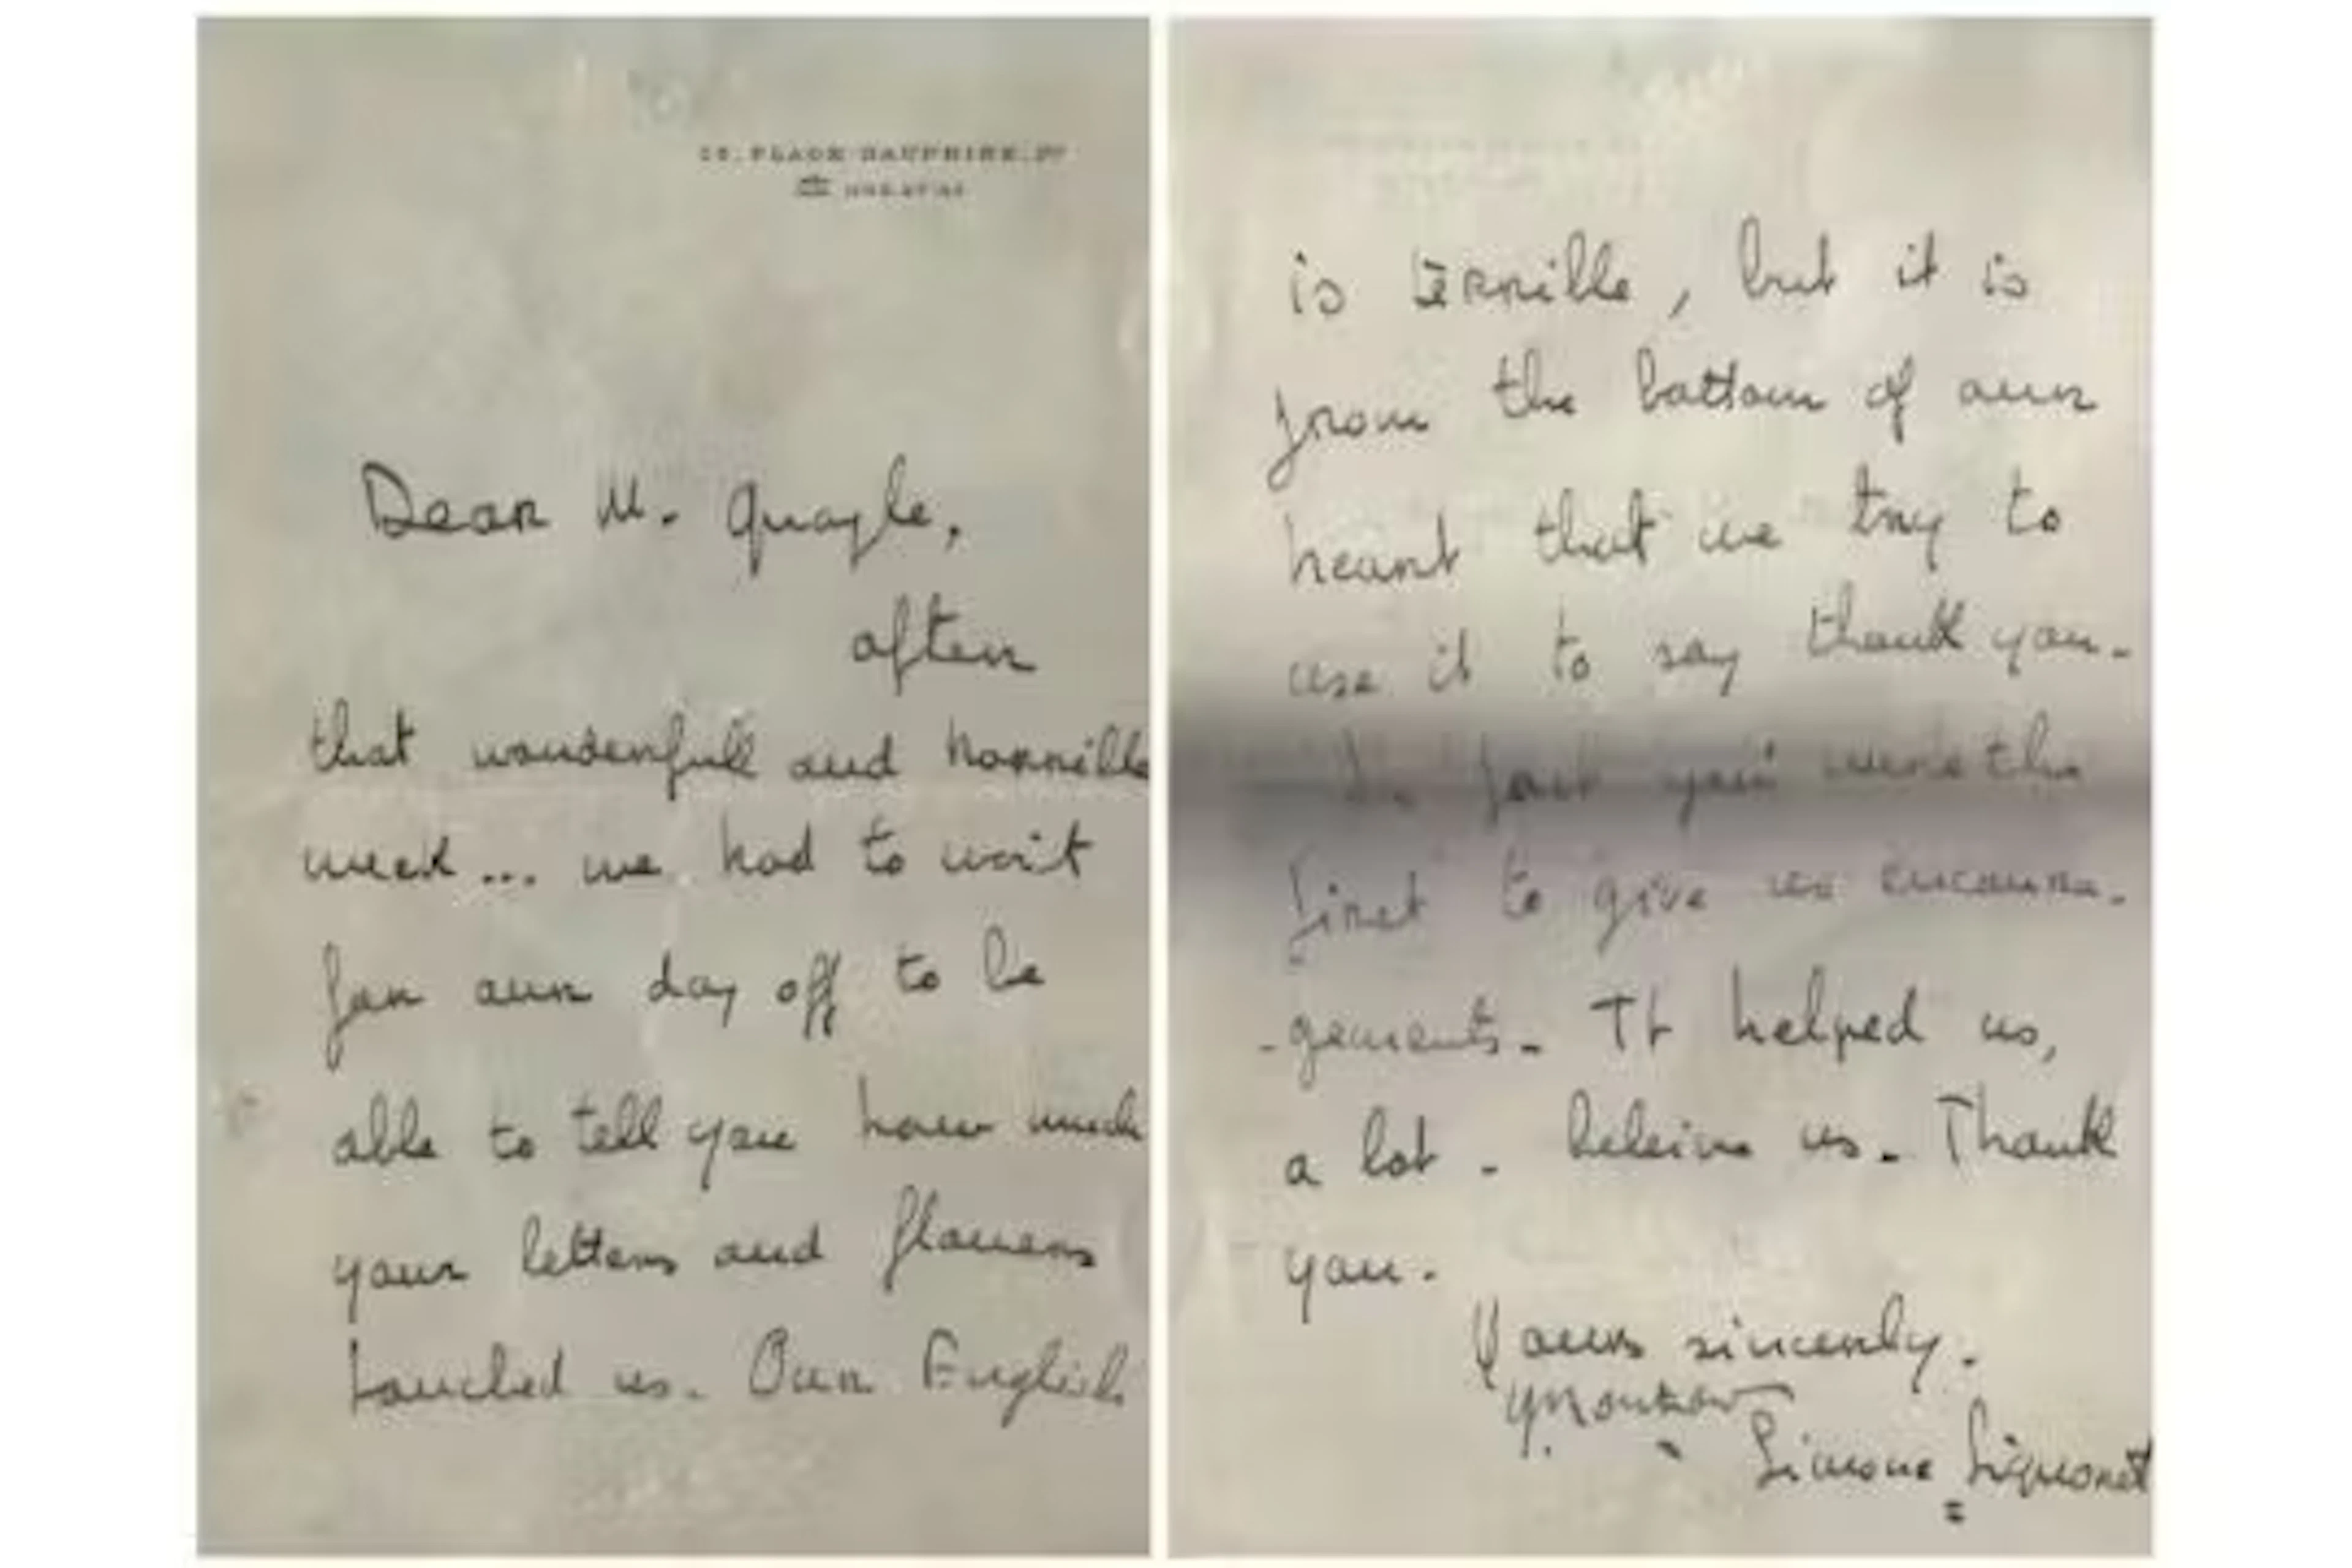 PLACE DAUPHINE
Dear M. Quayle,
after
that wonderfull and horrible
week... we had to wait
for our day off to be
able to tell you how much
your letters and flowers
touched us. Our English
is terrible, but it is
from the bottom of our
heart that we try to
use it to say thank you-
In fact you were the
first to give us encoura-
-gements- It helped us,
a lot - beleive us. Thank
you.
Yours sincerly.
YMontand
Simone Signoret